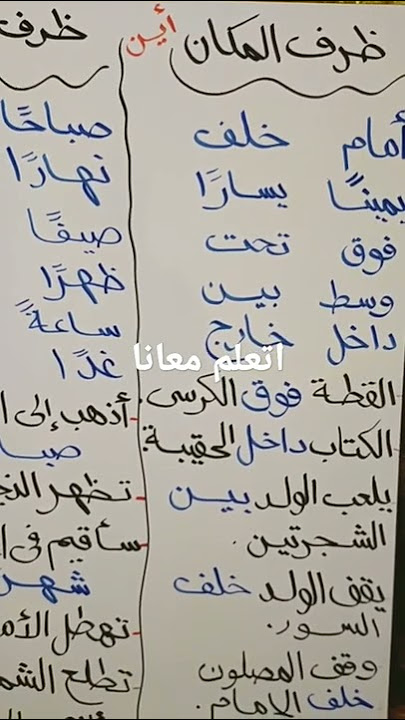 ظرف المكان
أين
أمام خلف
يمينًا يسارًا
فوق تحت
وسط بين
داخل خارج
القطة فوق الكرسى.
الكتاب داخل الحقيبة.
يلعب الولد بين
الشجرتين.
يقف الولد خلف
السور.
وقف المصلون
خلف الامام.
ظرف
صباحًا
نهارًا
صيفًا
ظهرًا
ساعةً
غدًا
- أذهب إلى
- تظهر
- سأقيم فى
- تهطل
- تطلع
اتعلم معانا